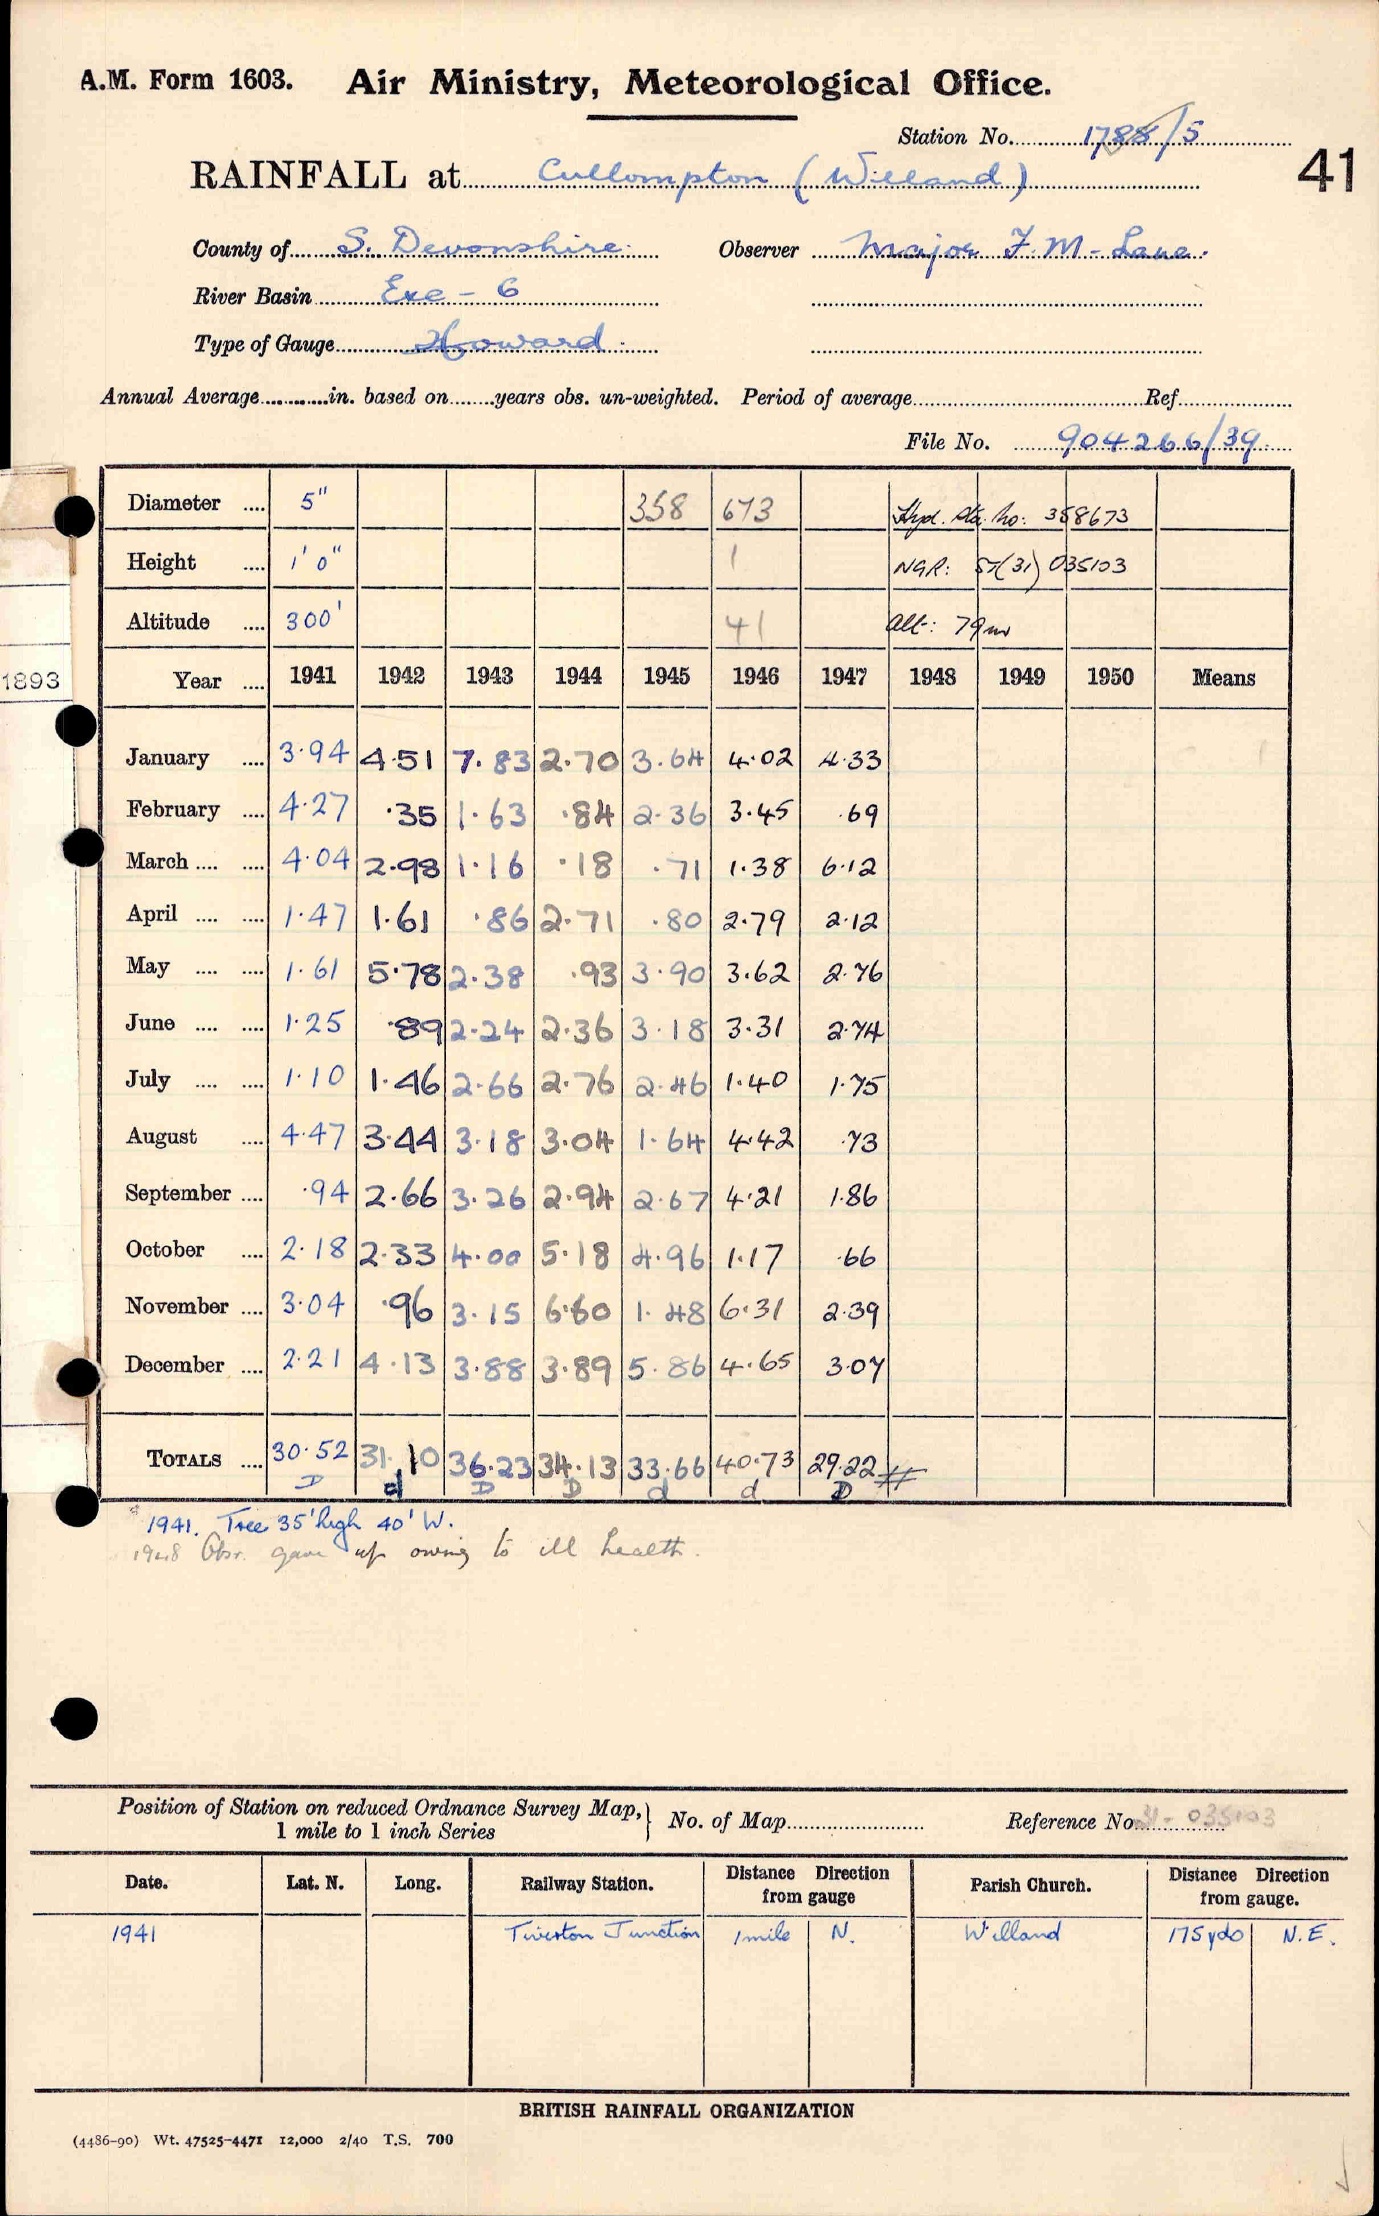 A.M. Form 1603. Air Ministry, Meteorological Office.
Station No. 1788/5
41
RAINFALL at Cullompton (Willand)
County of S. Devonshire. Observer Major F. M-Lane.
River Basin Exe - 6
Type of Gauge Howard
Annual Average in. based on years obs. un-weighted. Period of average Ref
File No. 904266/39
Diameter .... 5" 358 673 Hyd. Sta. No: 358673
Height .... 1' 0" 1 NGR: ST(31) 035103
Altitude .... 300' 41 Alt: 79m
1893
Year .... 1941 1942 1943 1944 1945 1946 1947 1948 1949 1950 Means
January .... 3.94 4.51 7.83 2.70 3.64 4.02 4.33
February .... 4.27 .35 1.63 .84 2.36 3.45 .69
March .... .... 4.04 2.98 1.16 .18 .71 1.38 6.12
April .... .... 1.47 1.61 .86 2.71 .80 2.79 2.12
May .... .... 1.61 5.78 2.38 .93 3.90 3.62 2.76
June .... .... 1.25 .89 2.24 2.36 3.18 3.31 2.74
July .... .... 1.10 1.46 2.66 2.76 2.46 1.40 1.75
August .... 4.47 3.44 3.18 3.04 1.64 4.42 .73
September .... .94 2.66 3.26 2.94 2.67 4.21 1.86
October .... 2.18 2.33 4.00 5.18 4.96 1.17 .66
November .... 3.04 .96 3.15 6.60 1.48 6.31 2.39
December .... 2.21 4.13 3.88 3.89 5.86 4.65 3.07
TOTALS .... 30.52 31.10 36.23 34.13 33.66 40.73 29.22 #
D d D D d d D
* 1941. Tree 35' high 40' W.
1948 Obsr. gave up owing to ill health.
Position of Station on reduced Ordnance Survey Map, 1 mile to 1 inch Series } No. of Map Reference No 31 - 035103
Date. Lat. N. Long. Railway Station. Distance Direction from gauge Parish Church. Distance Direction from gauge.
1941 Tiverton Junction 1 mile N. Willand 175 yds N.E.
BRITISH RAINFALL ORGANIZATION
(4486-90) Wt. 47525-4471 12,000 2/40 T.S. 700